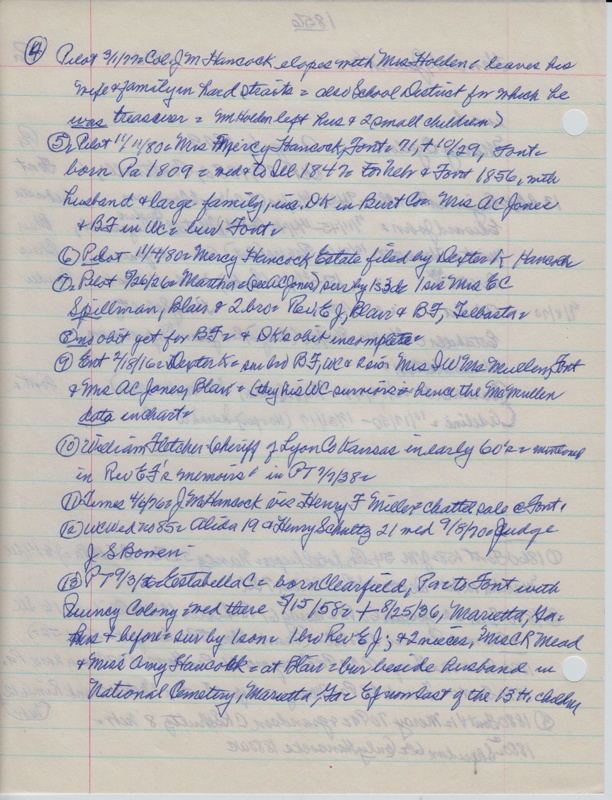 ④ Pilot 3/1/77= Col J M Hancock elopes with Mrs Holden & leaves his
wife & family in hard straits = also School District for which he
was treasurer = Mr Holden left hus & 2 small children)
⑤ Pilot 11/11/80= Mrs Mercy Hancock, Font= 71, + 10/29, Font=
born Pa 1809 = med & to Ill 1842= to Nebr & Font 1856, with
husband & large family, inc. DK in Burt Co= Mrs AC Jones
& BF in WC = bur Font=
⑥ Pilot 11/4/80= Mercy Hancock Estate filed by Dexter K Hancock
⑦ Pilot 9/26/26= Martha = (see AC Jones) sur by 1s3ds 1sis Mrs EC
Spillman, Blair & 2 bro= Rev E J, Blair & BF, Tecbasta=
⑧ no obit yet for BF= & DK's obit incomplete=
⑨ Ent 2/18/16= Dexter K = sur bro BF, WC & sis= Mrs I W McMullen, Font
& Mrs AC Jones, Blair = (they his WC survivors = hence the McMullen
data in chart=
⑩ William Fletcher Sheriff of Lyon Co Kansas in early 60's = mentioned
in Rev EJ's memoirs in PT 7/7/38=
⑪ Times 4/6/76= J M Hancock vs Henry F Miller= chattel sale @ Font,
⑫ WC Wed no 85= Alida 19 & Henry Schultz 21 med 9/8/70= Judge
J. S Bowen
⑬ PT 9/3/ = Estabella C = born Clearfield, Pa= to Font with
Quincy Colony = med there 8/15/58= + 8/25/36, Marietta, Ga=
hus + before= sur by 1 son= 1 bro Rev E J; & 2 nieces, Mrs CR Mead
& Miss Amy Hancock = at Blair = bur beside husband in
National Cemetery, Marietta, Ga= E J now last of the 13 H= children